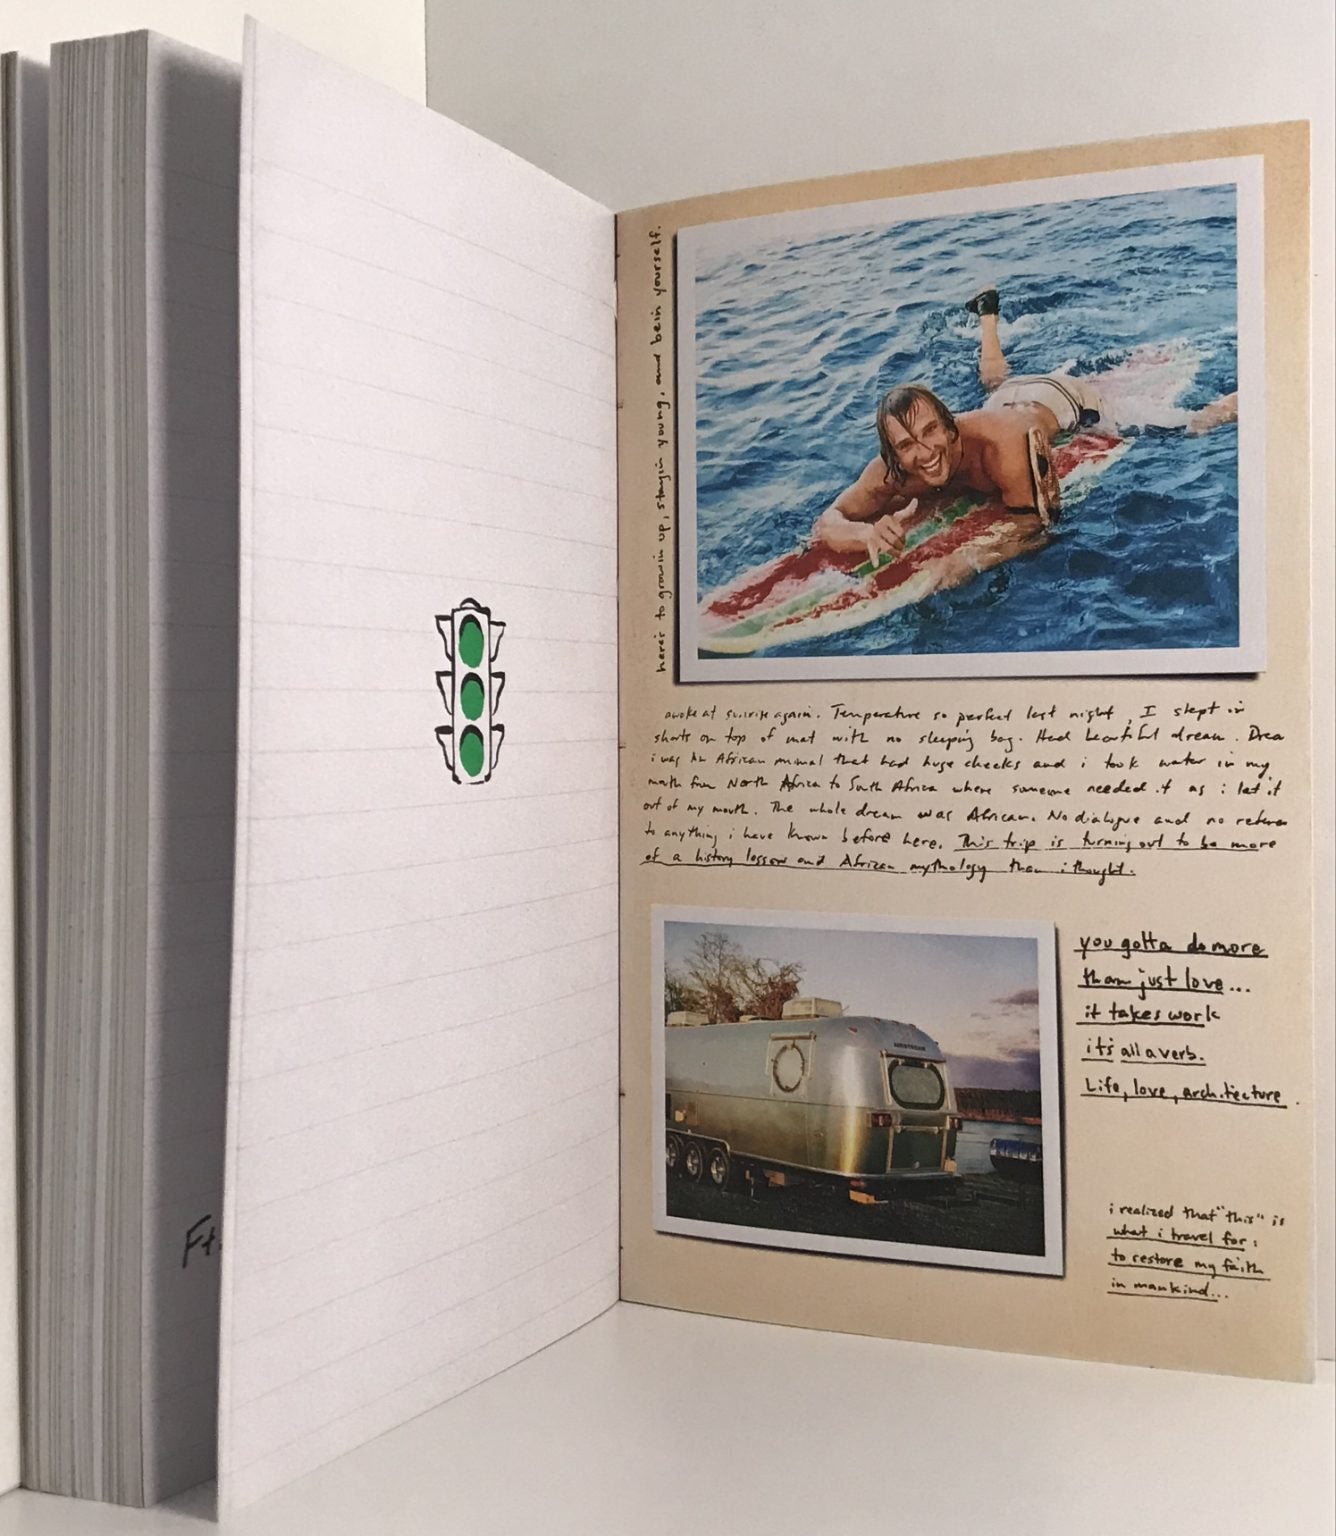 Ft.
here's to growin up, stayin young, and bein yourself.
awoke at sunrise again. Temperature so perfect last night, I slept in
shorts on top of mat with no sleeping bag. Had beautiful dream. Drea
i was an African animal that had huge cheeks and i took water in my
mouth from North Africa to South Africa where someone needed it as i let it
out of my mouth. The whole dream was African. No dialogue and no referen
to anything i have known before here. This trip is turning out to be more
of a history lesson and African mythology than i thought.
AIRSTREAM
you gotta do more
than just love...
it takes work
it's all a verb.
Life, love, architecture.
i realized that "this" is
what i travel for:
to restore my faith
in mankind...